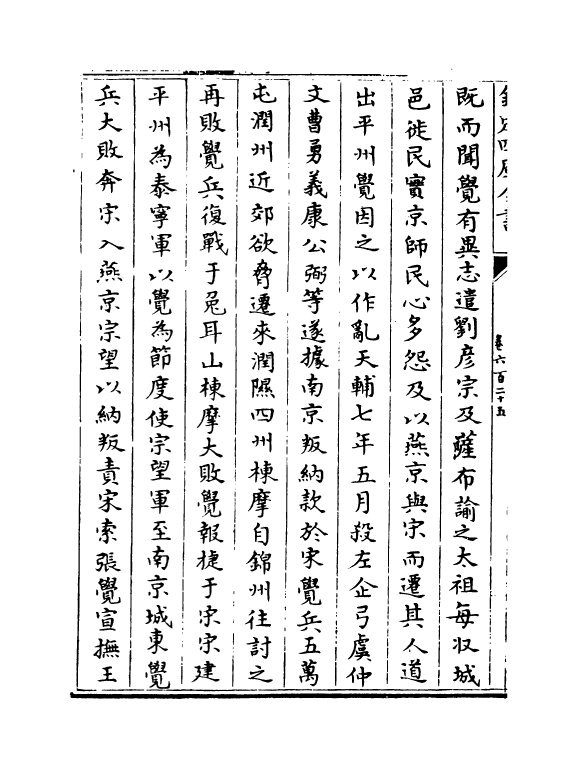 欽定四庫全書
卷六百二十五
既而聞覺有異志遣劉彦宗及薩布諭之太祖每收城
邑徙民實京師民心多怨及以燕京與宋而遷其人道
出平州覺因之以作亂天輔七年五月殺左企弓虞仲
文曹勇義康公弼等遂據南京叛納款於宋覺兵五萬
屯潤州近郊欲脅遷來潤隰四州棟摩自錦州往討之
再敗覺兵復戰于兎耳山棟摩大敗覺報捷于宋宋建
平州為泰寧軍以覺為節度使宗望軍至南京城東覺
兵大敗奔宋入燕京宗望以納叛責宋索張覺宣撫王